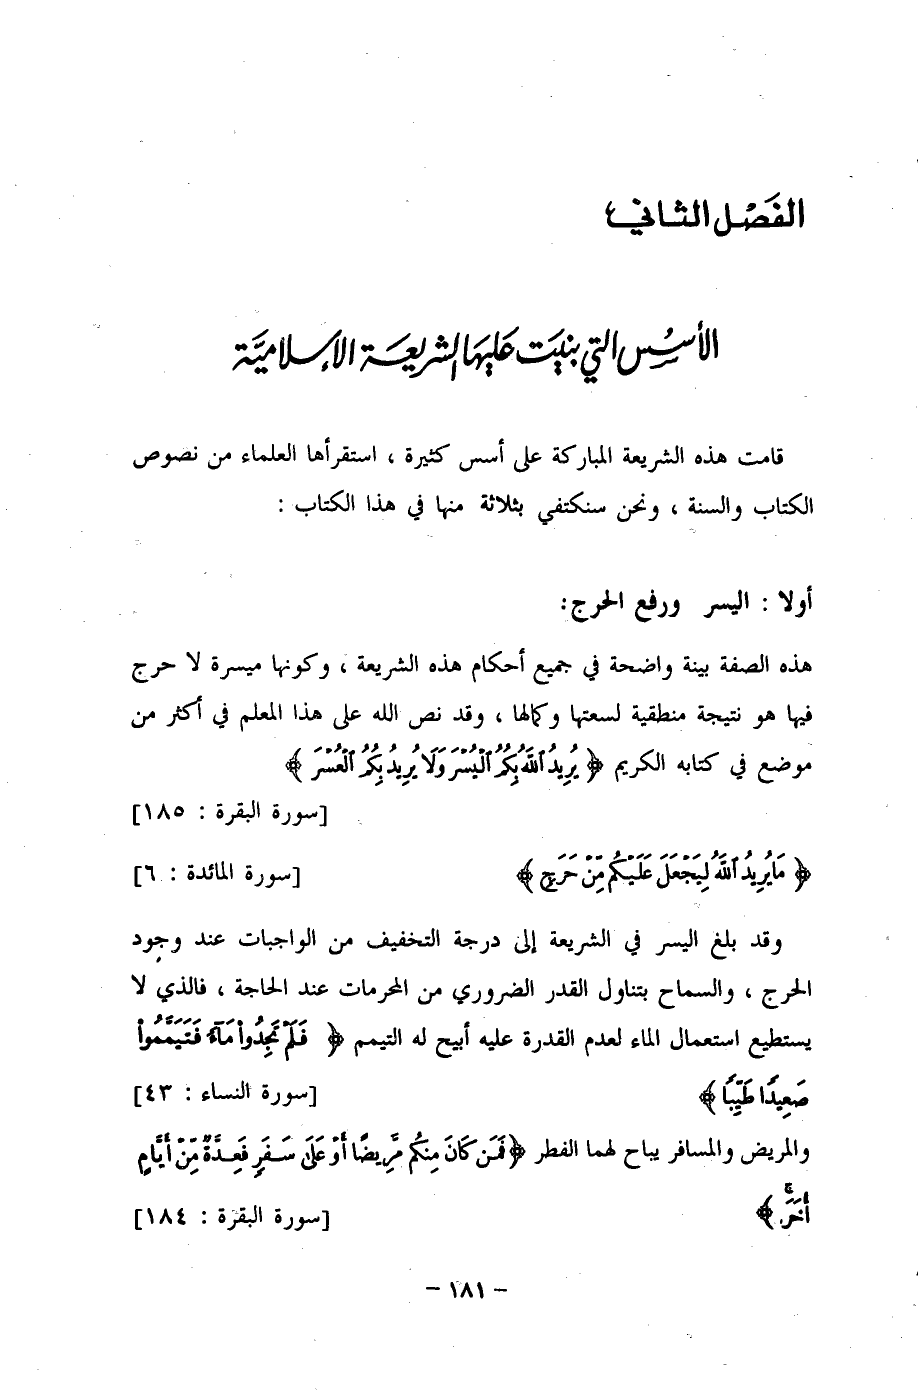 الفَصْل الثاني
الأسُس التي بنيَت عليهَا الشريعَة الإسلاميَّة
قامت هذه الشريعة المباركة على أسس كثيرة ، استقرأها العلماء من نصوص
الكتاب والسنة ، ونحن سنكتفي بثلاثة منها في هذا الكتاب :
أولا : اليسر ورفع الحرج:
هذه الصفة بينة واضحة في جميع أحكام هذه الشريعة ، وكونها ميسرة لا حرج
فيها هو نتيجة منطقية لسعتها وكمالها ، وقد نص الله على هذا المعلم في أكثر من
موضع في كتابه الكريم ﴿ يُرِيدُ ٱللَّهُ بِكُمُ ٱلْيُسْرَ وَلَا يُرِيدُ بِكُمُ ٱلْعُسْرَ ﴾
[سورة البقرة : ١٨٥]
﴿ مَا يُرِيدُ ٱللَّهُ لِيَجْعَلَ عَلَيْكُم مِّنْ حَرَجٍ ﴾ [سورة المائدة : ٦]
وقد بلغ اليسر في الشريعة إلى درجة التخفيف من الواجبات عند وجود
الحرج ، والسماح بتناول القدر الضروري من المحرمات عند الحاجة ، فالذي لا
يستطيع استعمال الماء لعدم القدرة عليه أبيح له التيمم ﴿ فَلَمْ تَجِدُوا۟ مَآءً فَتَيَمَّمُوا۟
صَعِيدًا طَيِّبًا ﴾ [سورة النساء : ٤٣]
والمريض والمسافر يباح لهما الفطر ﴿ فَمَن كَانَ مِنكُم مَّرِيضًا أَوْ عَلَىٰ سَفَرٍ فَعِدَّةٌ مِّنْ أَيَّامٍ
أُخَرَۚ ﴾ [سورة البقرة : ١٨٤]
- ١٨١ -